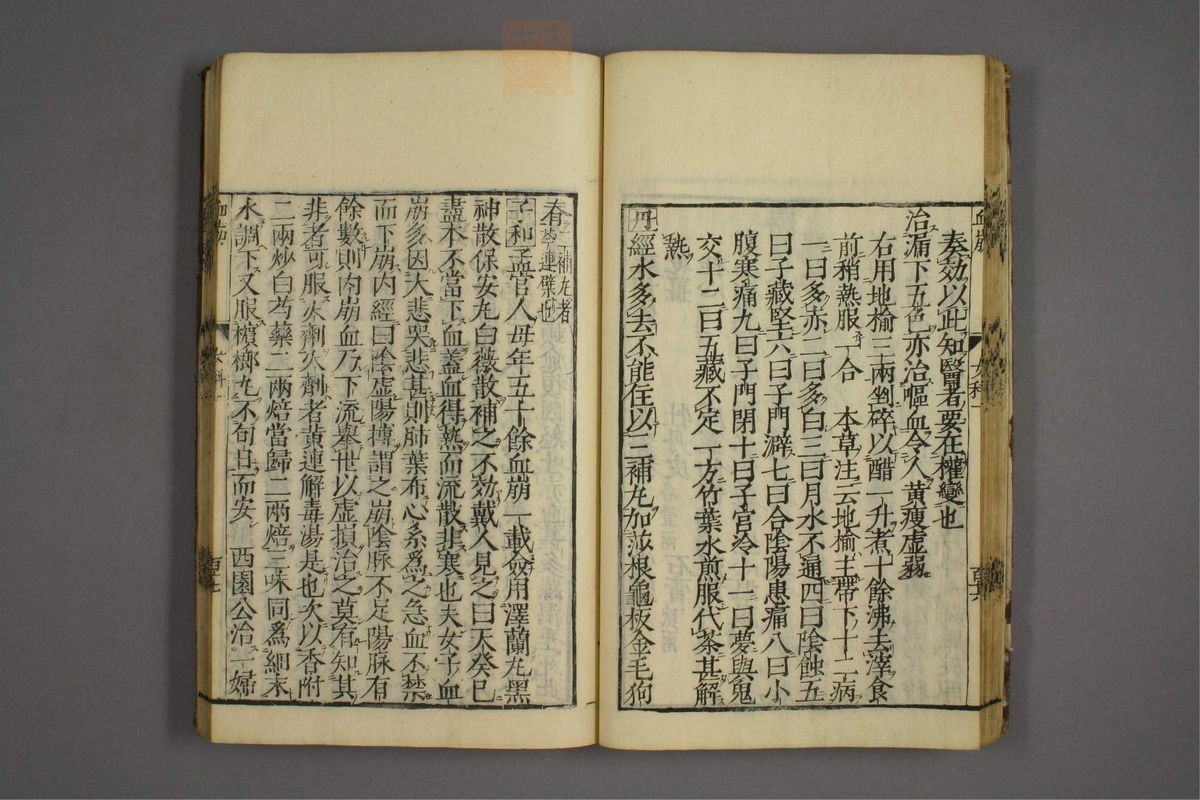 奏効以此知醫者要在權變也
治漏下五色亦治嘔血令人黃瘦虛弱
右用地榆三兩剉碎以醋一升煮十餘沸去滓食
前稍熱服一合 本草注云地榆主帶下十二病
一曰多赤二曰多白三曰月水不通四曰陰蝕五
曰子藏堅六曰子門澼七曰合陰陽患痛八曰小
腹寒痛九曰子門閉十曰子宮冷十一曰夢與鬼
交十二曰五藏不定一方竹葉水煎服代茶甚解
熱
丹經水多去不能住以三補丸加莎根龜板金毛狗
脊三補丸者芩連蘗也
子和孟官人母年五十餘血崩一載僉用澤蘭丸黑
神散保安丸白薇散補之不効戴人見之曰天癸已
盡本不當下血蓋血得熱而流散非寒也夫女子血
崩多因大悲哭悲甚則肺葉布心系爲之急血不禁
而下崩內經曰陰虛陽搏謂之崩陰脉不足陽脉有
餘數則內崩血乃下流舉世以虛損治之莫有知其
非者可服火劑火劑者黃連解毒湯是也次以香附
二兩炒白芍藥二兩焙當歸二兩焙三味同爲細末
水調下又服檳榔丸不旬日而安 西園公治一婦
血崩
女科一